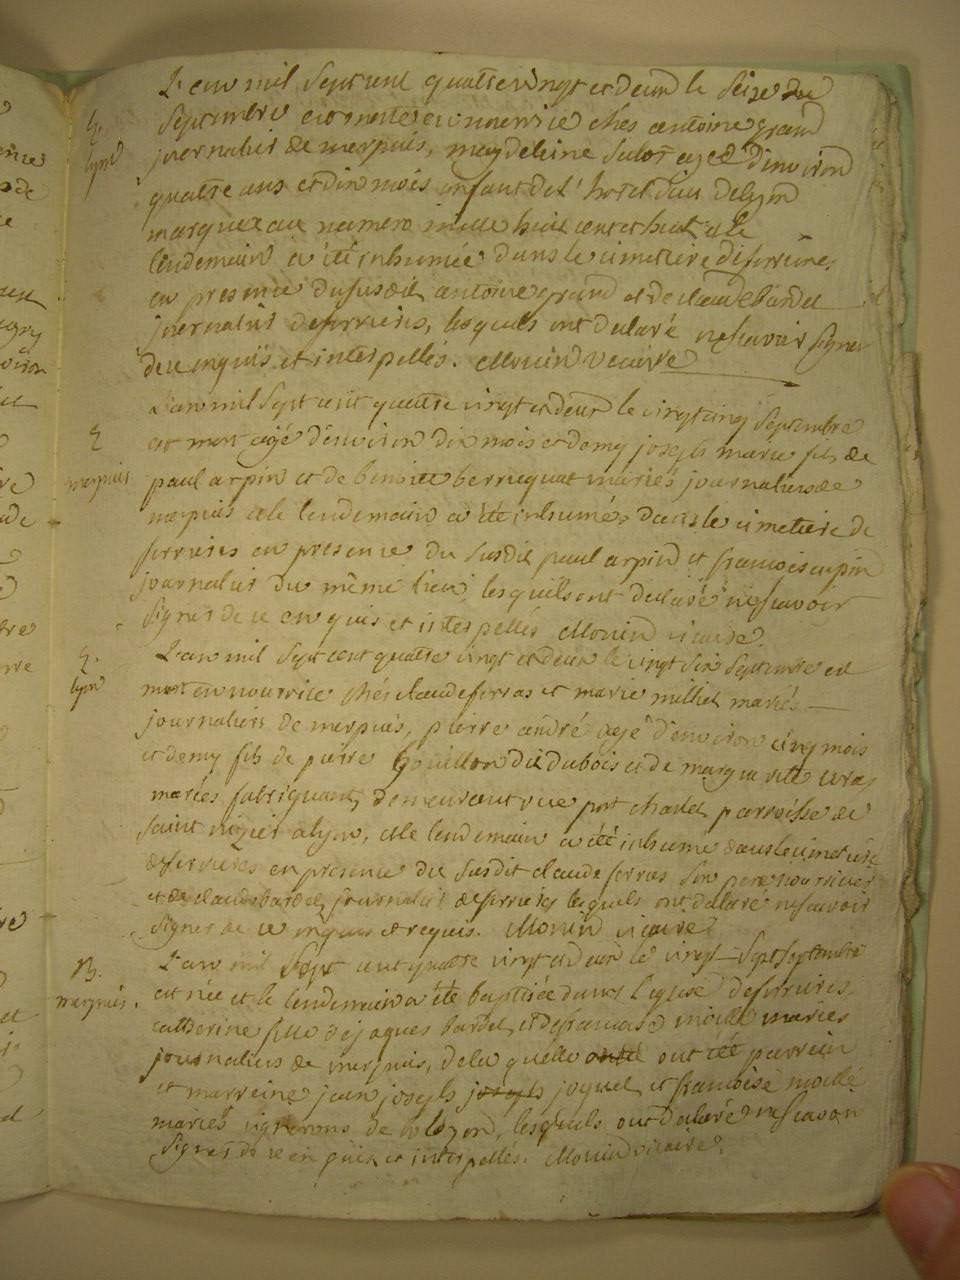 L'an mil sept cent quattrevingt et deux le seize du
S. lyon
septembre est morte en nourrice chés antoine grand
journalier de merpuis, magdeleine julot agée d'environ
quattre ans et dix mois enfant de l'hotel dieu de lyon
marquée au numero mille huit cent et huit et le
lendemain a été inhumée dans le cimetiere de ferrieres
en presence du susdit antoine grand et de claude bardet
journalier de ferrieres, lesquels ont declaré ne scavoir signer
de ce enquis et interpellés. Monin vicaire
L'an mil sept cent quattre vingt et deux le vingt cinq septembre
S. merpuis
est mort agé d'environ dix mois et demy joseph marie fils de
paul arpin et de benoitte berruquat mariés journaliers de
merpuis et le lendemain a été inhumé dans le cimetiere de
ferrieres en presence du susdit paul arpin et francois cupin
journalier du même lieu, lesquels ont declaré ne scavoir
signer de ce en quis et interpellés Monin vicaire
S. lyon
L'an mil sept cent quattre vingt et deux le vingt six septembre est
mort en nourrice chés claude ferras et marie millet mariés
journaliers de merpuis, pierre andré agé d'environ cinq mois
et demy fils de pierre bouillon dit dubois et de margueritte
mariés fabriquants demeurant rue port charlet parroisse de
saint nizier a lyon, et le lendemain a été inhume dans le cimetiere
de ferrieres en presence du susdit claude ferras son pere nourricier
et de claude bardet journalier de ferrieres lesquels ont declaré ne scavoir
signer de ce enquis et requis. Monin vicaire
B. merpuis.
L'an mil sept cent quattre vingt et deux le vingt sept septembre
est née et le lendemain a été baptisée dans l'eglise de ferrieres
catherine fille de jaques bardet et de francoise moille mariés
journaliers de merpuis, de la quelle ont été parrein
et marreine jean joseph joseph joquet et francoise moille
mariés vignerons de lesquels ont declaré ne scavoir
signer de ce en quis et interpellés. Monin vicaire